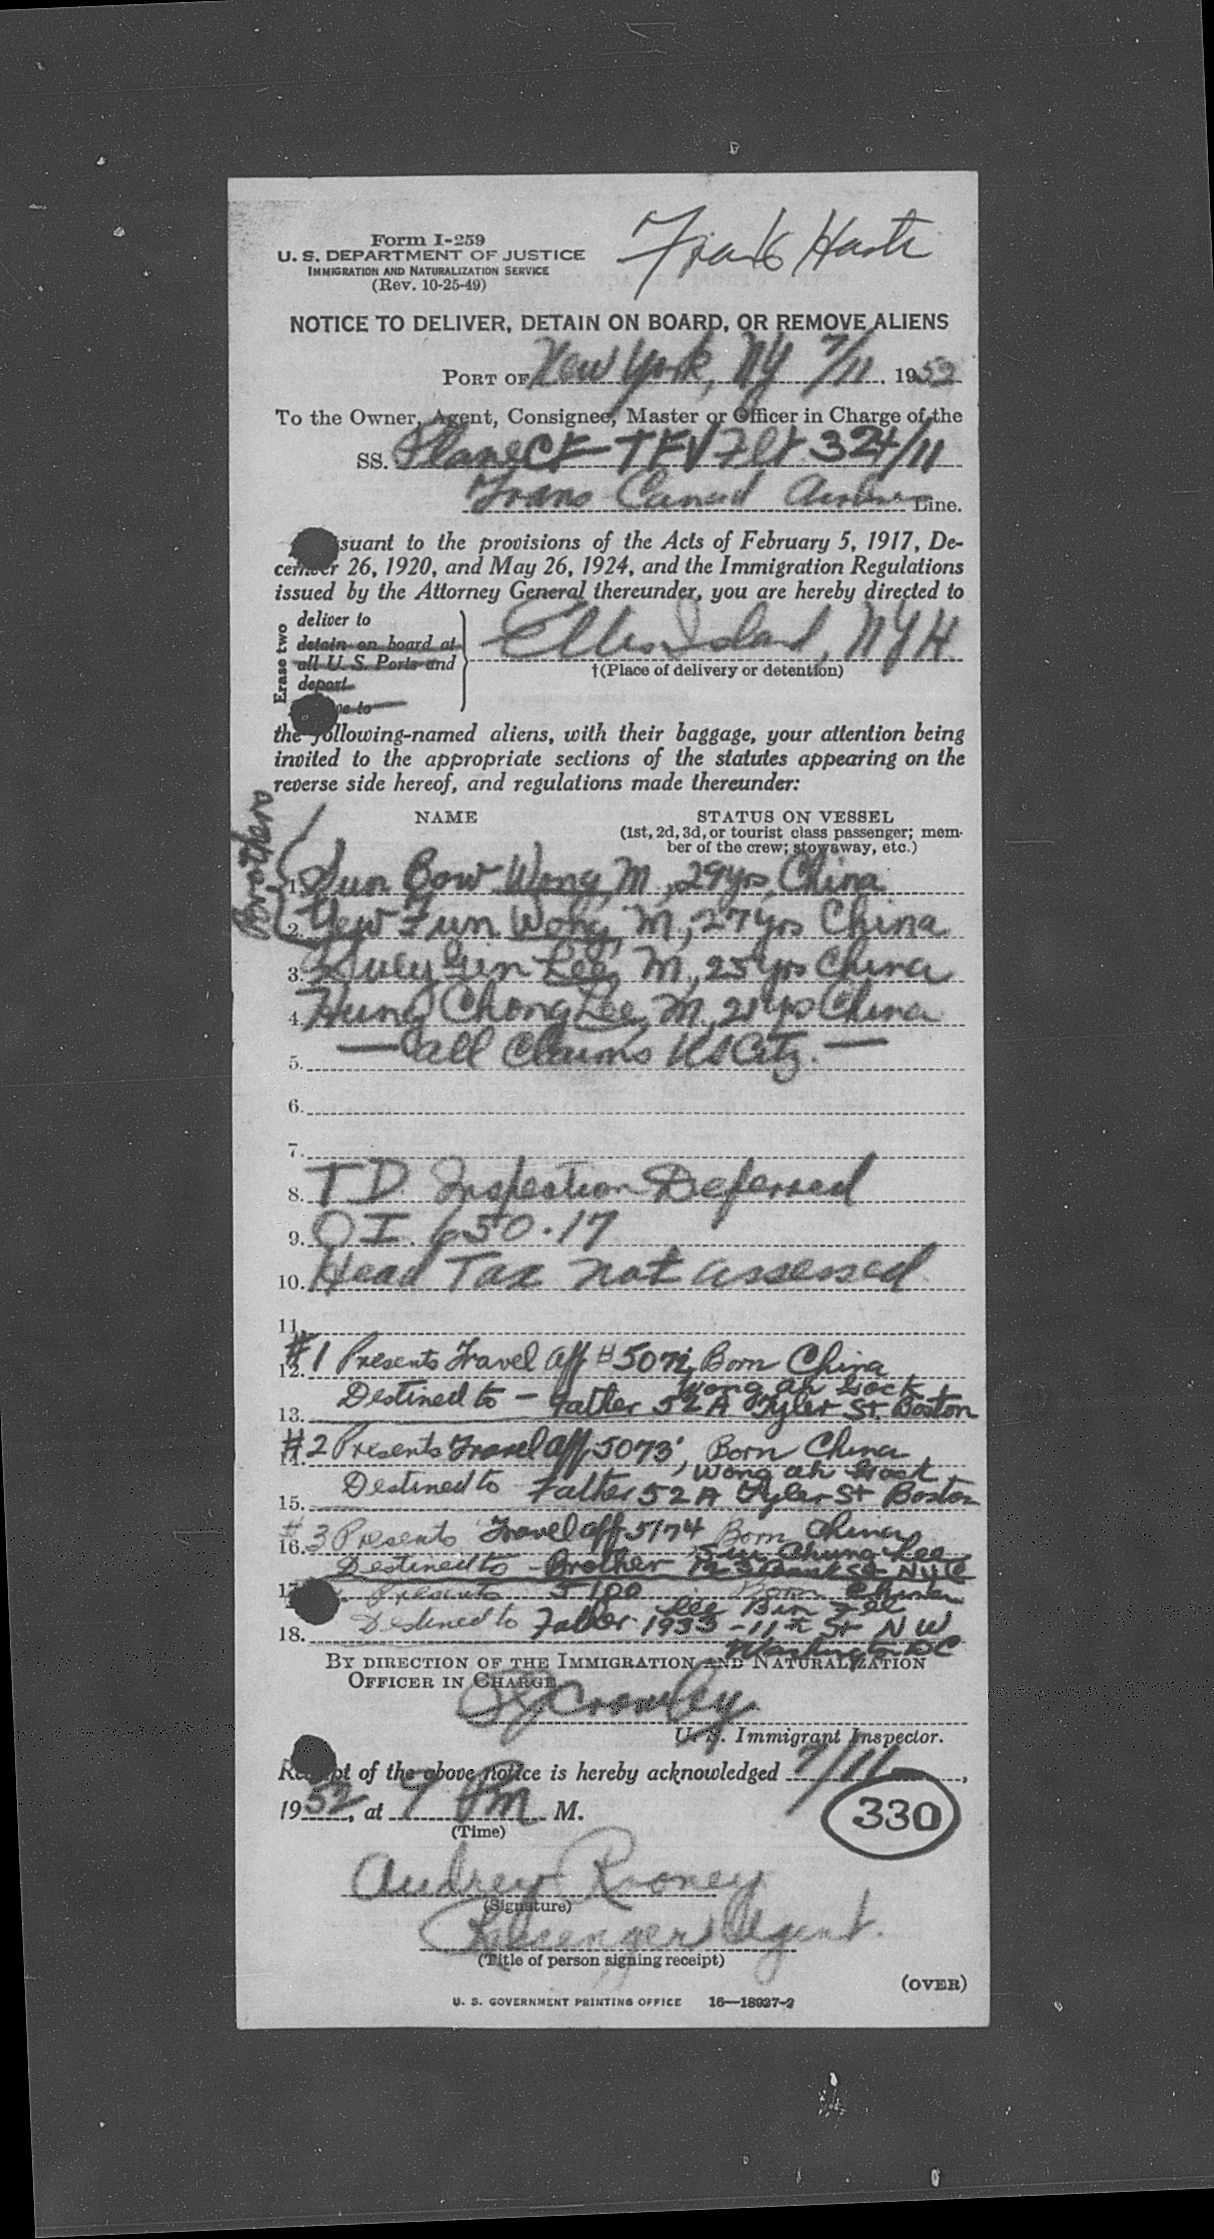 Form I-259
U. S. DEPARTMENT OF JUSTICE
IMMIGRATION AND NATURALIZATION SERVICE
(Rev. 10-25-49)
Frank
NOTICE TO DELIVER, DETAIN ON BOARD, OR REMOVE ALIENS
PORT OF New York, NY 7/11, 1952
To the Owner, Agent, Consignee, Master or Officer in Charge of the
SS. Plane CF-TFV Flt 324/11
Trans Canad Line.
suant to the provisions of the Acts of February 5, 1917, De-
cember 26, 1920, and May 26, 1924, and the Immigration Regulations
issued by the Attorney General thereunder, you are hereby directed to
Erase two
deliver to
detain on board at
all U. S. Ports and
deport
to
Ellis Island, NYH
†(Place of delivery or detention)
the following-named aliens, with their baggage, your attention being
invited to the appropriate sections of the statutes appearing on the
reverse side hereof, and regulations made thereunder:
NAME STATUS ON VESSEL
(1st, 2d, 3d, or tourist class passenger; mem-
ber of the crew; stowaway, etc.)
Brothers
1. Sun Bow Wong, M, 29yrs, China
2. Yew Fun Wong, M, 27yrs China
3. Gin Lee, M, 25yrs China
4. Hung Chong Lee, M, 21yrs China
5. — all Claims US Citz. —
6.
7.
8. T.D. Inspection Deferred
9. OI. 650.17
10. Head Tax not assessed
11.
12. #1 Presents Travel aff # Born China
Wong ah
13. Destined to - Father 52A Tyler St. Boston
14. #2 Presents Travel aff 5073, Born China
Wong ah
15. Destined to Father 52A Tyler St Boston
16. #3 Presents Travel aff 5174 Born China
Chung Lee
Destined to - Brother NYC
17. Presents 5100 Born China
Lee Bin
18. Destined to Father 1933 - 11th St NW
Washington DC
BY DIRECTION OF THE IMMIGRATION AND NATURALIZATION
OFFICER IN CHARGE
Crowley
U. S. Immigrant Inspector.
Receipt of the above notice is hereby acknowledged 7/11,
1952, at 7 Pm M.
(Time)
330
Audrey Rooney
(Signature)
Passenger Agent.
(Title of person signing receipt)
(OVER)
U. S. GOVERNMENT PRINTING OFFICE 16—18937-2